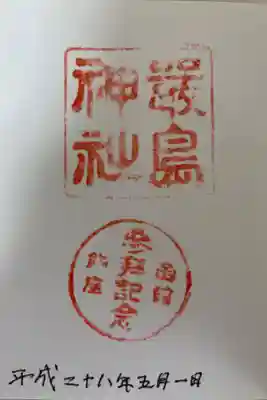 厳島
神社
函館
参拝記念
鎮座
平成二十八年五月一日